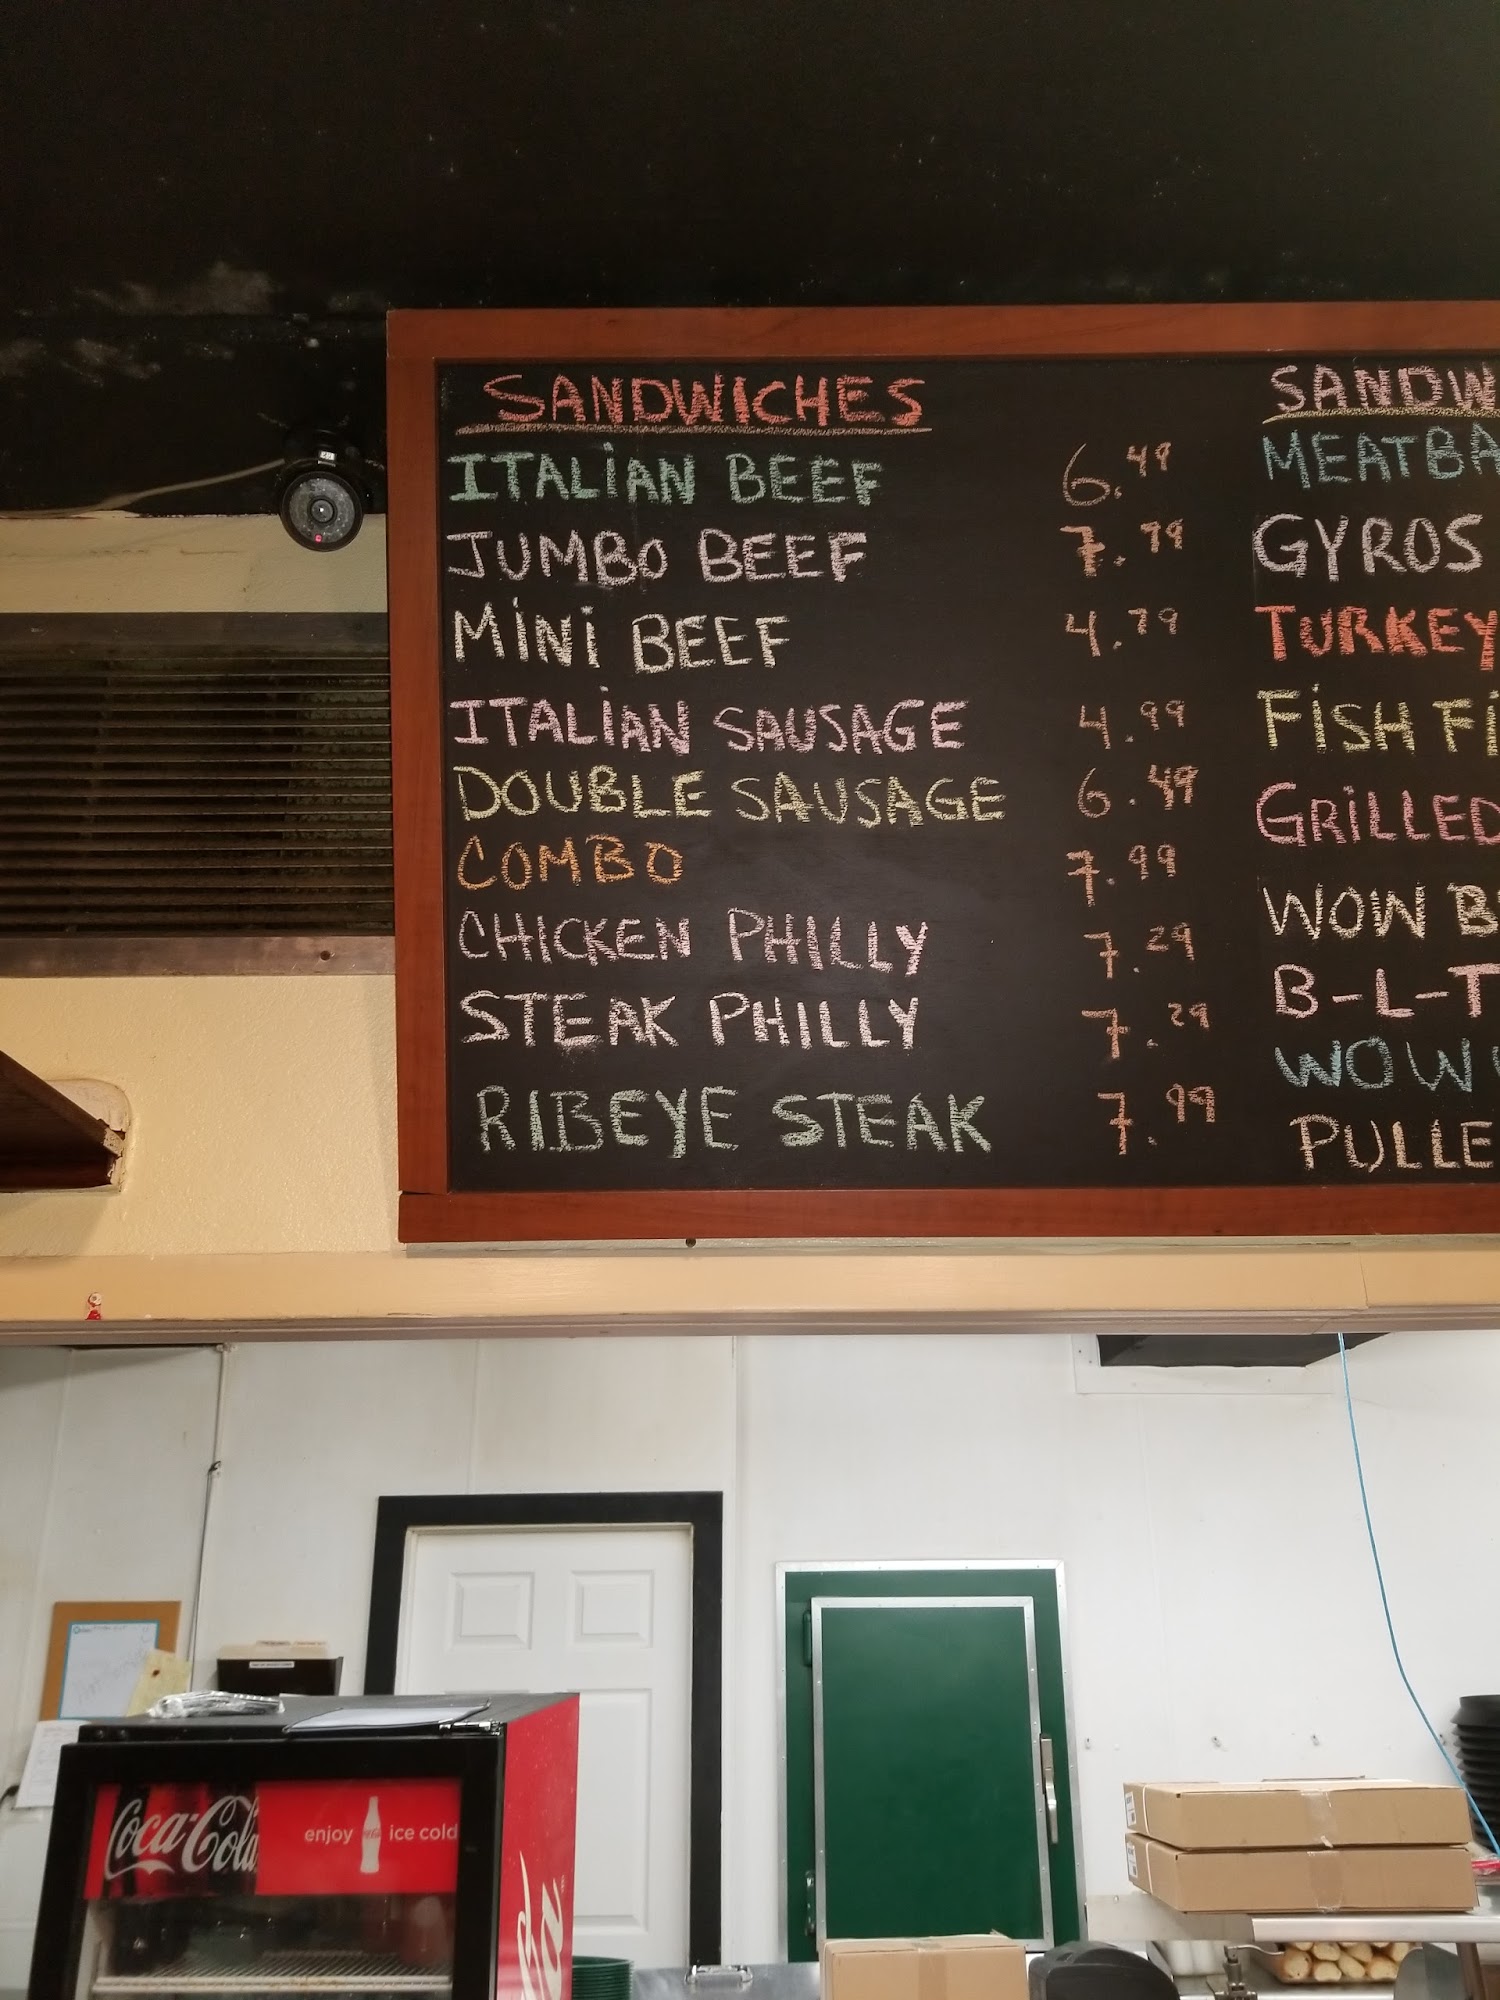 SANDWICHES
ITALiAN BEEF 6.49
JUMBO BEEF 7.99
MiNi BEEF 4.79
ITALiAN SAUSAGE 4.99
DOUBLE SAUSAGE 6.49
COMBO 7.99
CHICKEN PHILLY 7.29
STEAK PHILLY 7.29
RIBEYE STEAK 7.99
SANDW
MEATBA
GYROS
TURKEY
FiSH Fi
GRiLLED
WOW B
B-L-T
WOW
PULLE
Coca-Cola
enjoy ice cold